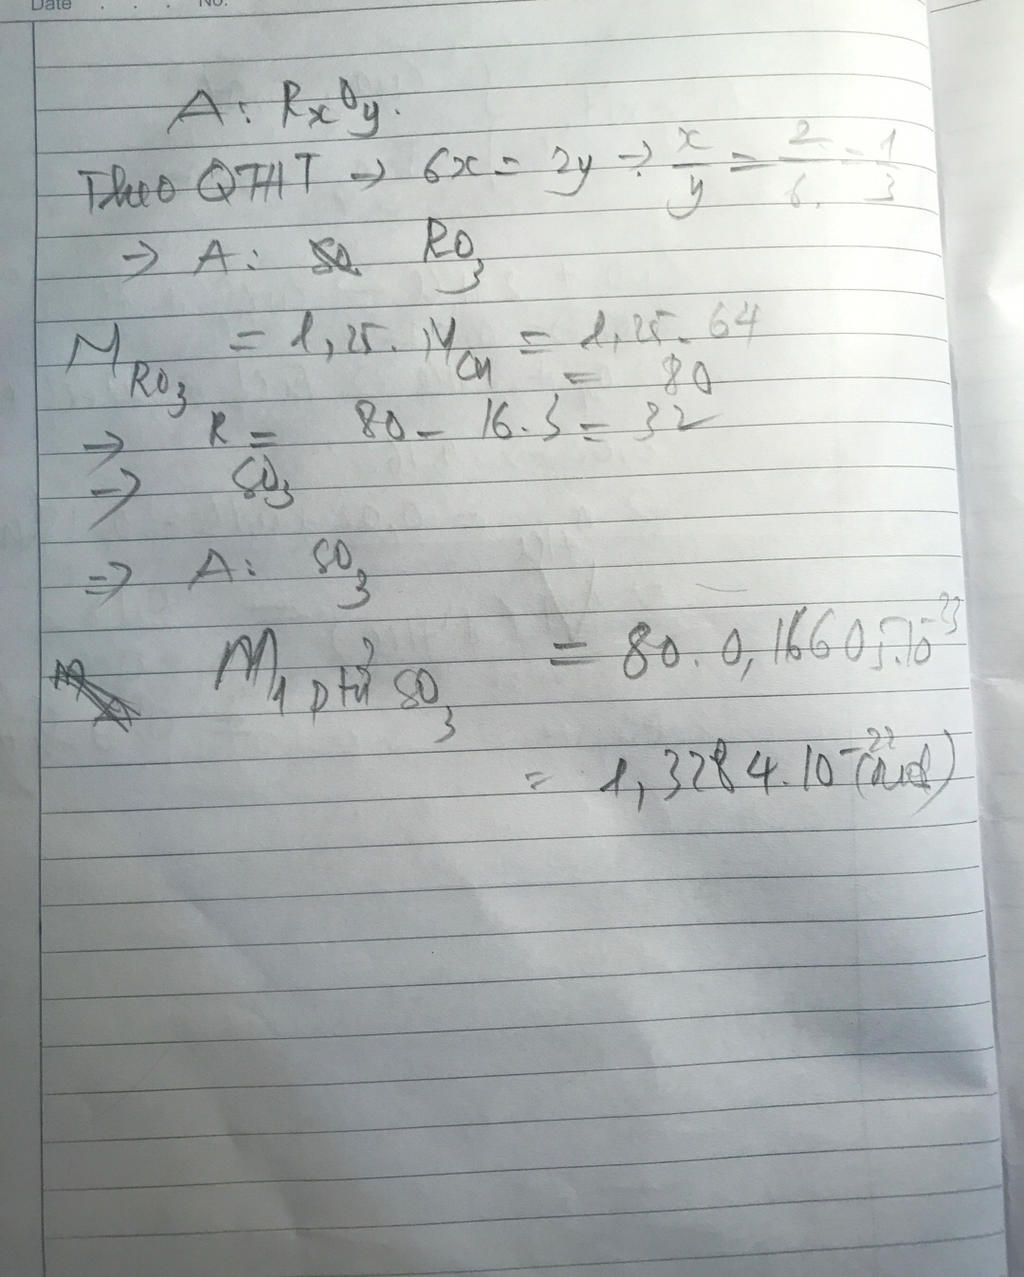 Date . . . No.
A: RxOy.
Theo QTHT → 6x = 2y → x/y = 2/6 = 1/3
→ A: RO3
M RO3 = 1,25. M Cu = 1,25. 64
= 80
→ R = 80 - 16.3 = 32
→ SO3
→ A: SO3
m 1 ptử SO3 = 80. 0,16605.10^-23
= 1,3284.10^-22